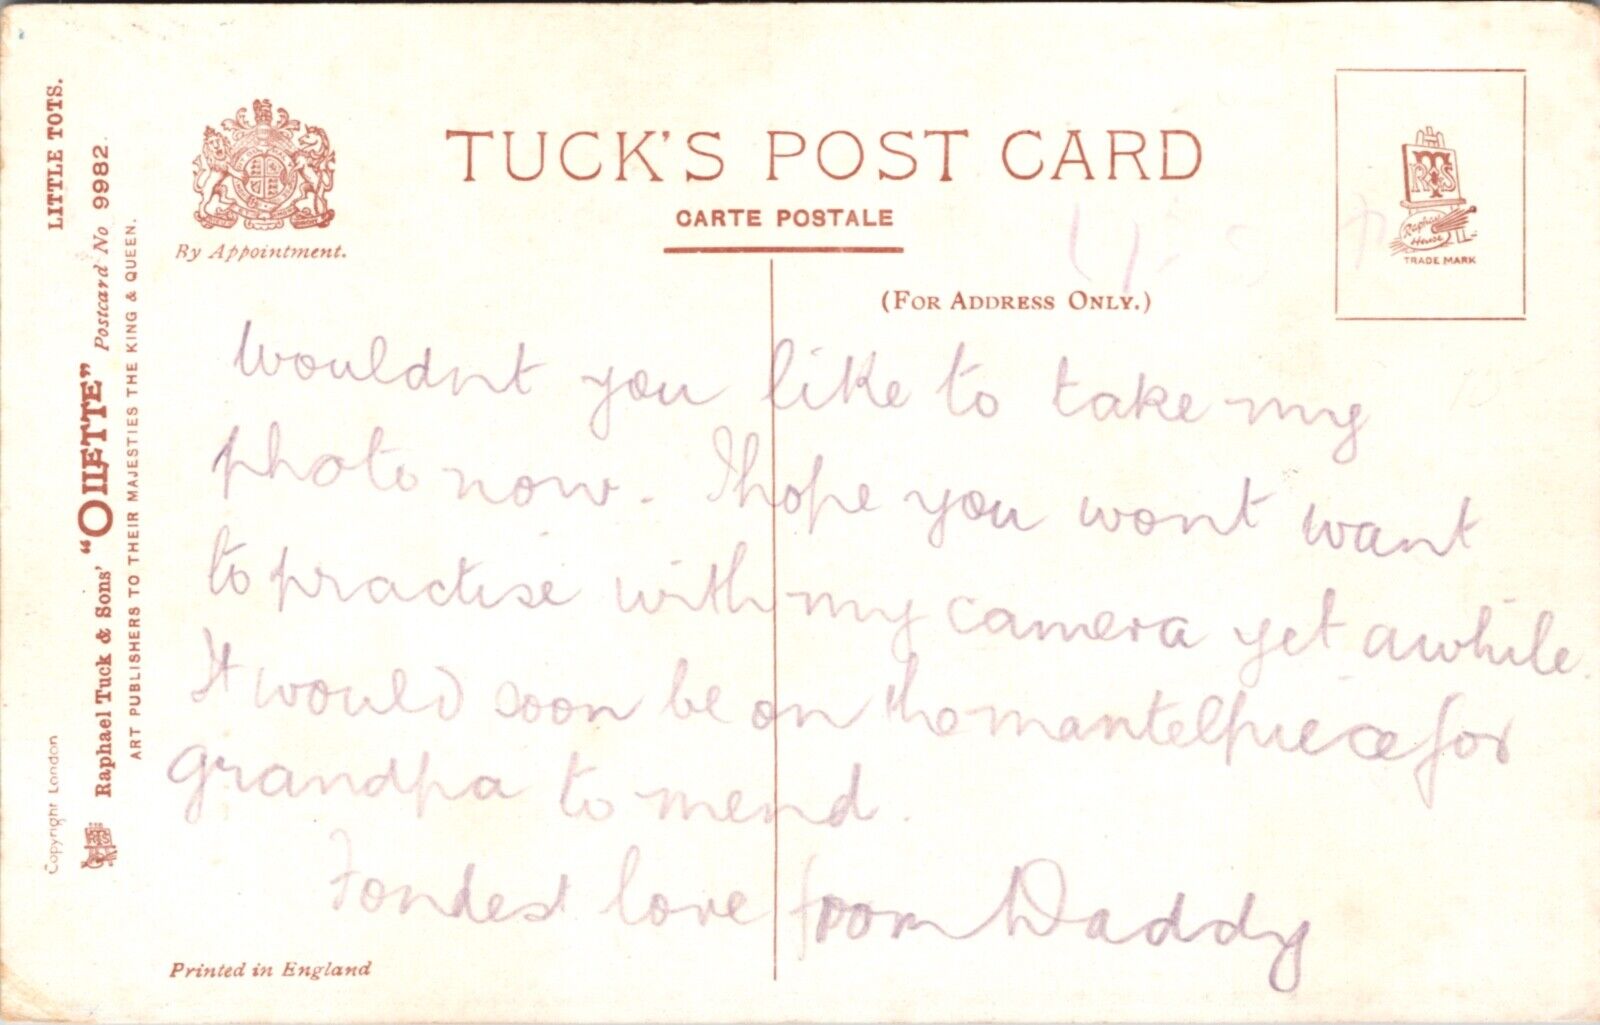 LITTLE TOTS.
Raphael Tuck & Sons' "OILETTE" Postcard No 9982.
ART PUBLISHERS TO THEIR MAJESTIES THE KING & QUEEN.
Copyright London
By Appointment.
TUCK'S POST CARD
CARTE POSTALE
(FOR ADDRESS ONLY.)
RTS
Raphael House
TRADE MARK
Wouldnt you like to take my
photo now. I hope you wont want
to practise with my camera yet awhile.
It would soon be on the mantelpiece for
grandpa to mend.
Fondest love from Daddy
Printed in England